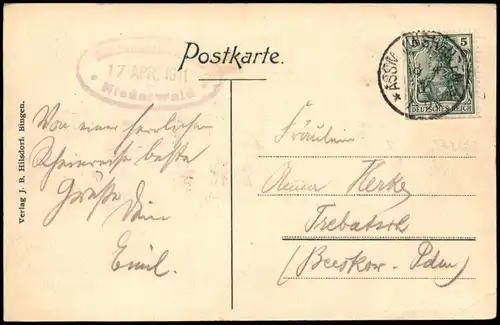 Postkarte.
17 APR. 1911
Niederwald
ASSMANNSHAUSEN
5 5
DEUTSCHES REICH
Von einer herrlichen
Rheinreise beste
Grüße Dein
Emil.
Fräulein
Anna Herke
Trebatsch
(Beeskow.
Verlag J. B. Hilsdorf, Bingen.